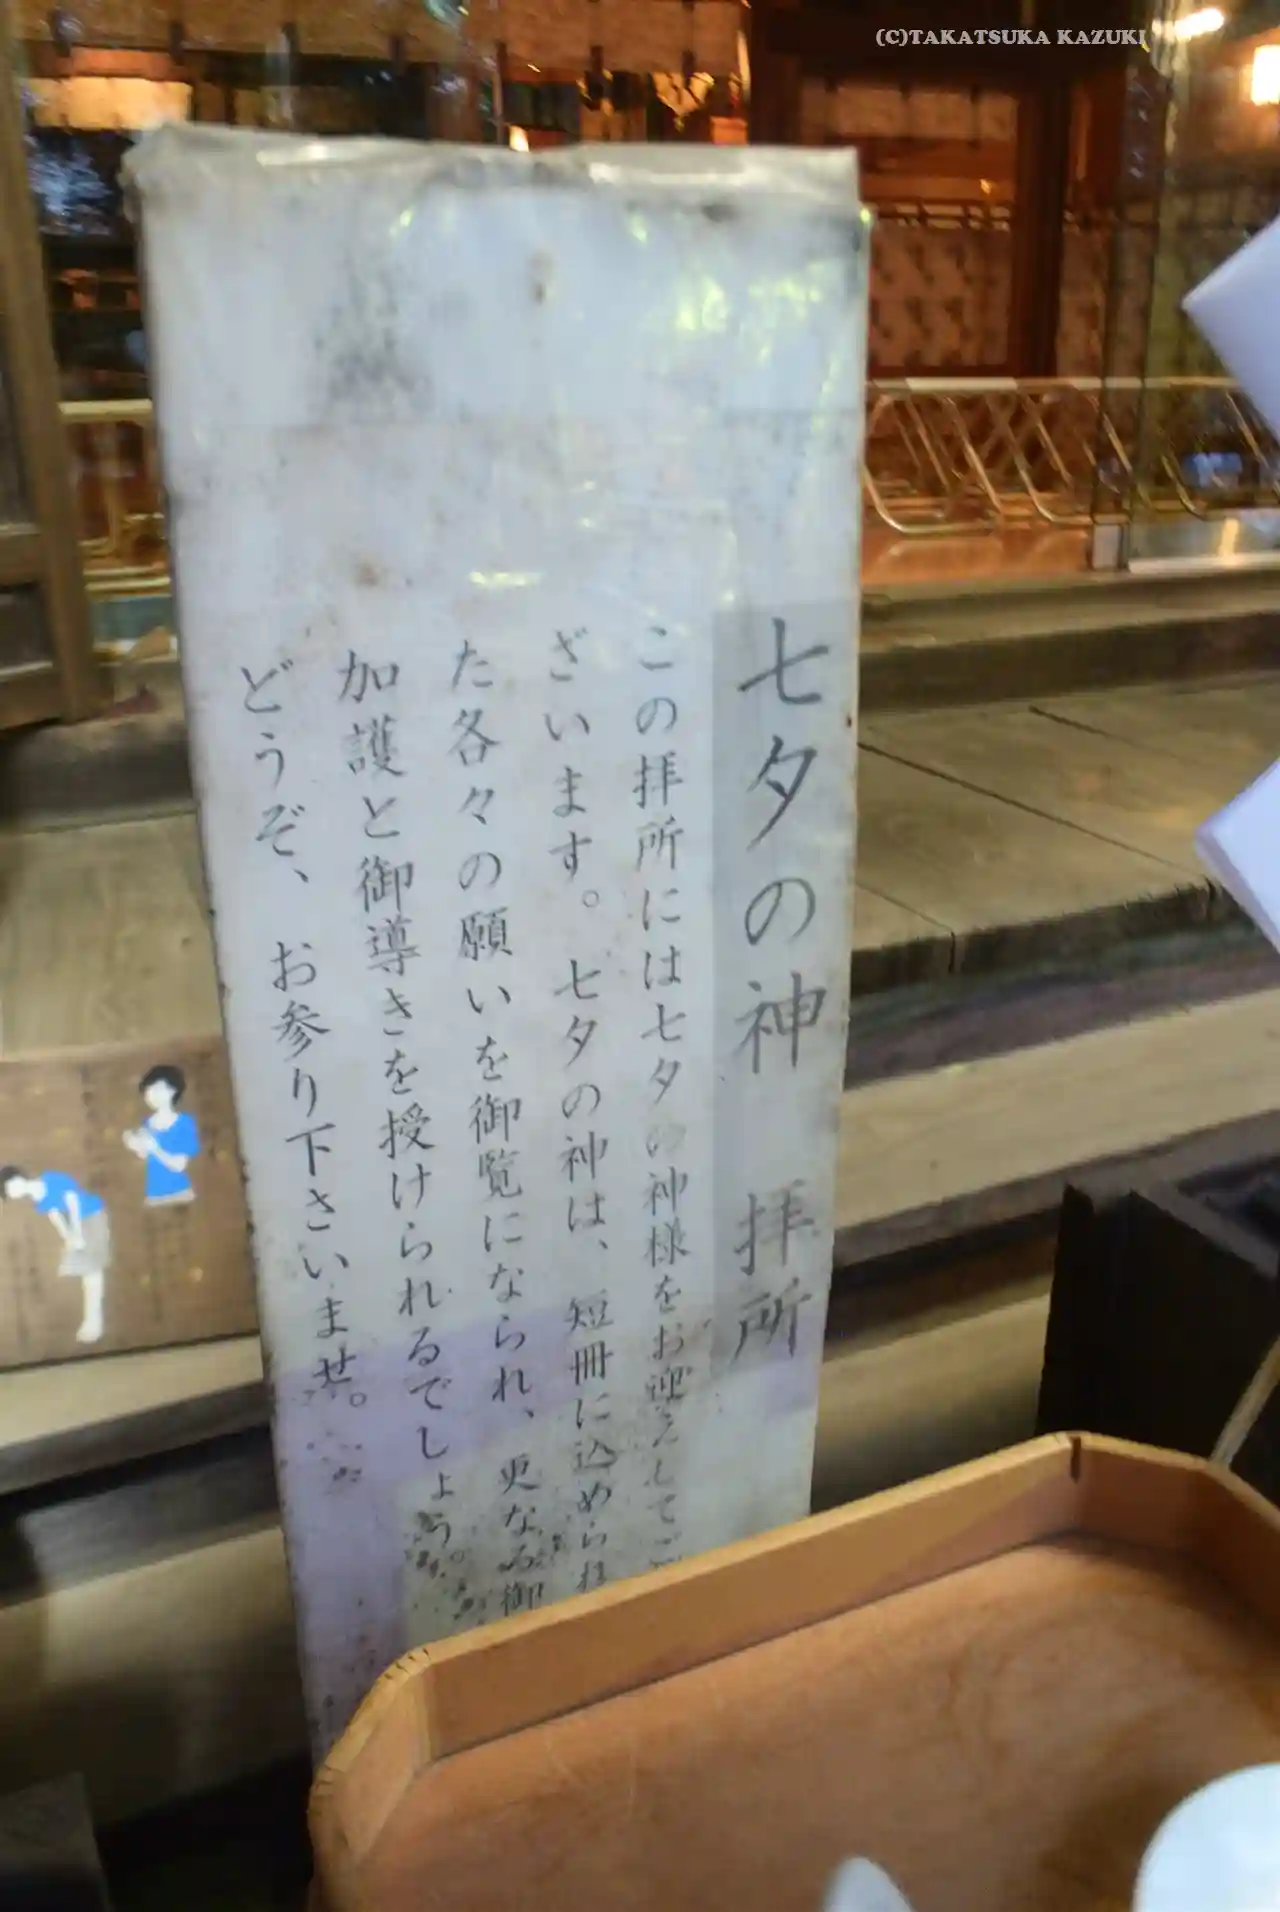 (C)TAKATSUKA KAZUKI
七夕の神　拝所
この拝所には七夕の神様をお迎えしてご
ざいます。七夕の神は、短冊に込められ
た各々の願いを御覧になられ、更なる御
加護と御導きを授けられるでしょう。
どうぞ、お参り下さいませ。